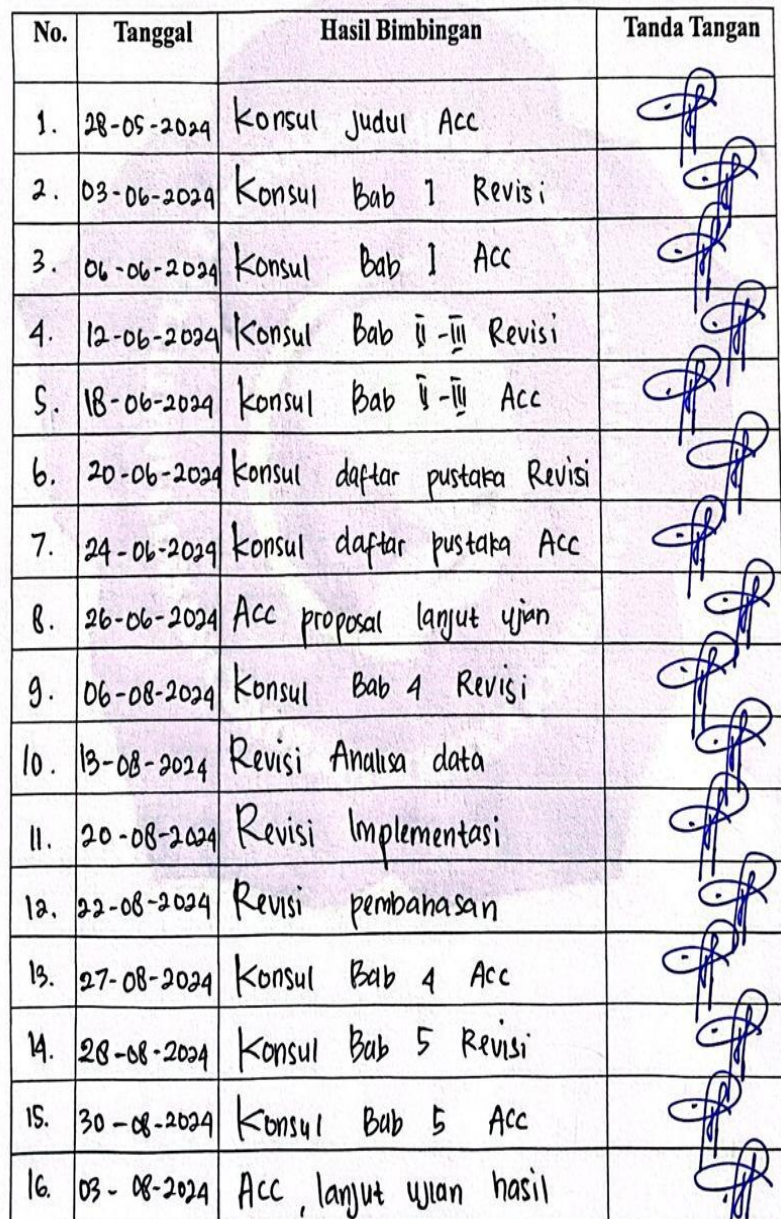 No. Tanggal Hasil Bimbingan Tanda Tangan
1. 28-05-2024 Konsul Judul Acc
2. 03-06-2024 Konsul Bab I Revisi
3. 06-06-2024 Konsul Bab I Acc
4. 12-06-2024 Konsul Bab II-III Revisi
5. 18-06-2024 Konsul Bab II-III Acc
6. 20-06-2024 Konsul daftar pustaka Revisi
7. 24-06-2024 Konsul daftar pustaka Acc
8. 26-06-2024 Acc proposal lanjut ujian
9. 06-08-2024 Konsul Bab 4 Revisi
10. 13-08-2024 Revisi Analisa data
11. 20-08-2024 Revisi Implementasi
12. 22-08-2024 Revisi pembahasan
13. 27-08-2024 Konsul Bab 4 Acc
14. 28-08-2024 Konsul Bab 5 Revisi
15. 30-08-2024 Konsul Bab 5 Acc
16. 03-08-2024 Acc, lanjut ujian hasil